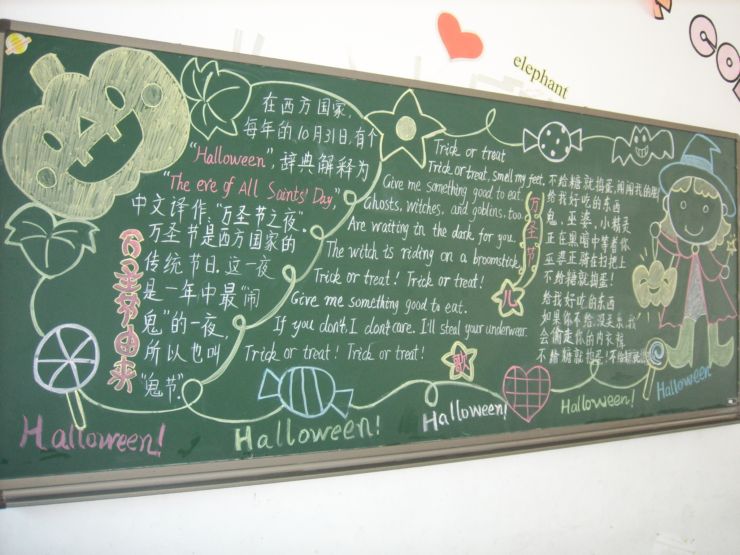 elephant
COL
在西方国家,
每年的10月31日,有个
"Halloween",辞典解释为
"The eve of All Saints' Day,"
中文译作:"万圣节之夜".
万圣节是西方国家的
传统节日.这一夜
是一年中最"闹
鬼"的一夜,
所以也叫
"鬼节".
万圣节由来
Trick or treat
Trick or treat, smell my feet.
Give me something good to eat.
Ghosts, witches, and goblins, too.
Are waiting in the dark for you.
The witch is riding on a broomstick
Trick or treat! Trick or treat!
Give me something good to eat.
If you don't, I don't care. I'll steal your underwear.
Trick or treat! Trick or treat!
万圣节
儿
歌
不给糖就捣蛋,闻闻我的脚
给我好吃的东西
鬼,巫婆,小精灵
正在黑暗中等着你
巫婆正骑在扫把上
不给糖就捣蛋!
给我好吃的东西
如果你不给,没关系,我
会偷走你的内衣裤
不给糖就捣蛋!
Halloween!
Halloween!
Halloween!
Halloween!
Halloween!